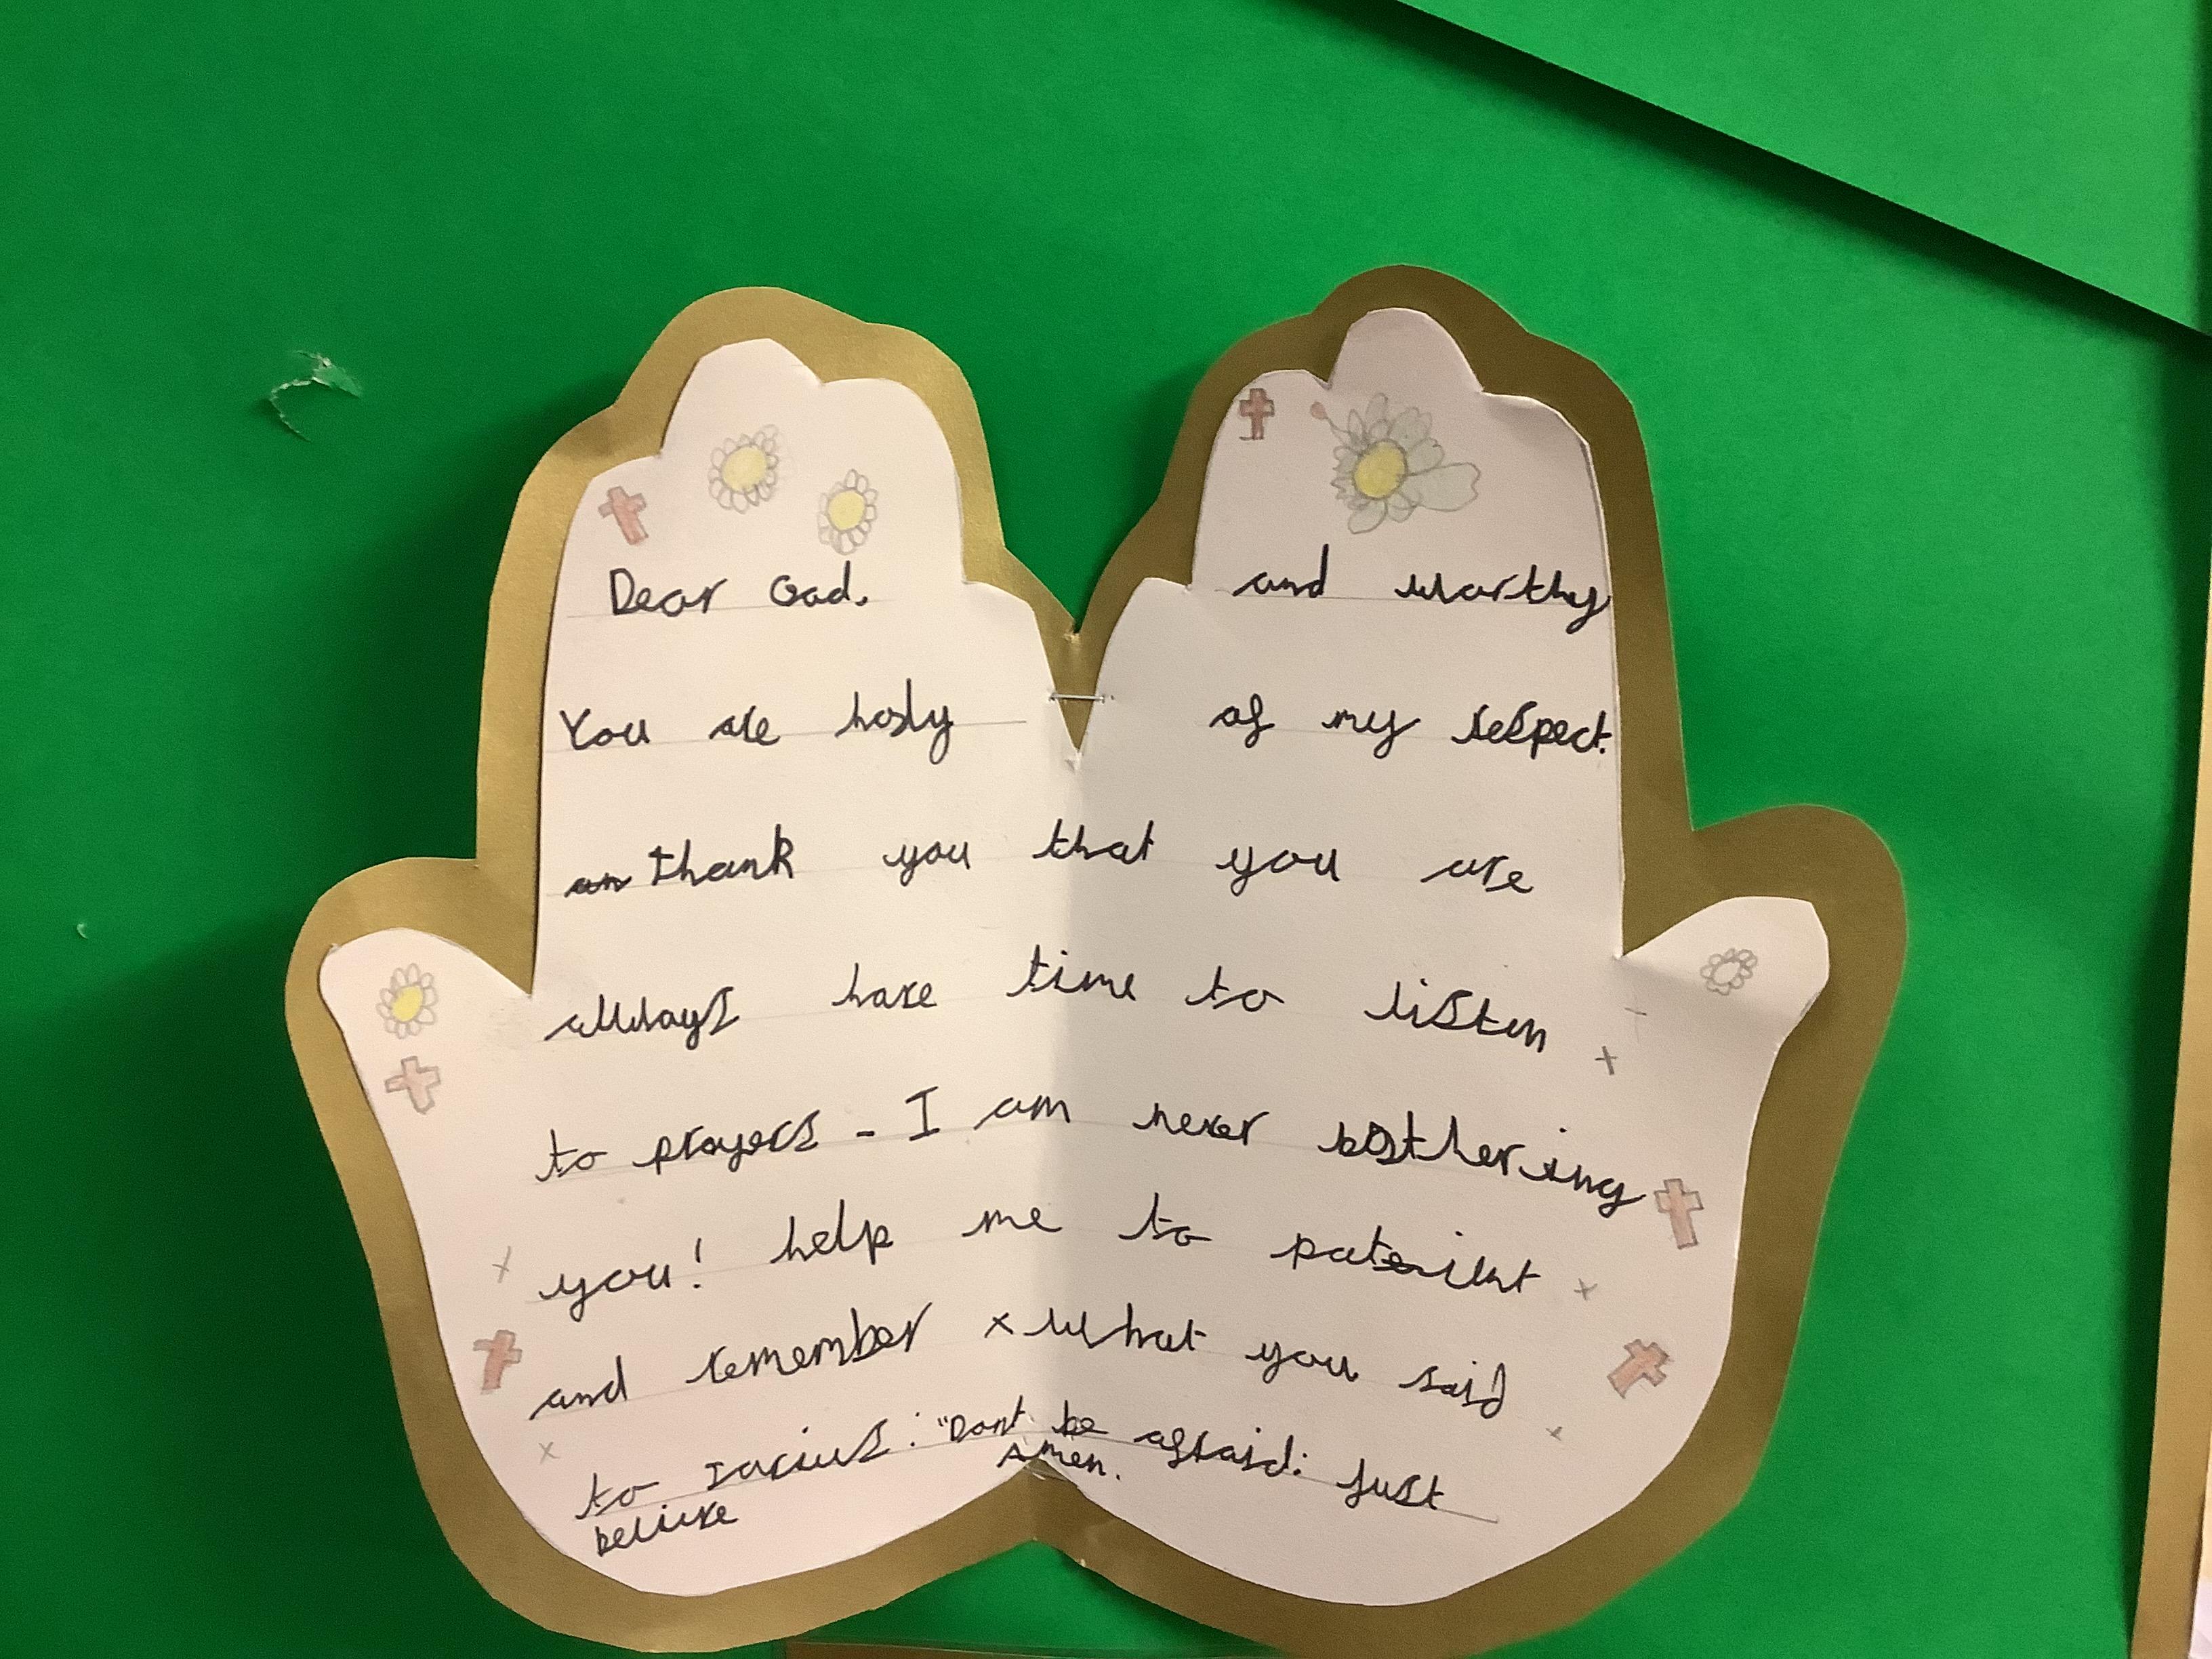 Dear God.
You are holy and worthy
of my respect.
an thank you that you are
allways have time to listen
to prayers - I am never bothering
you! help me to pateient
and remember what you said
to Iarius: "Dont be afraid: just
believe
Amen.